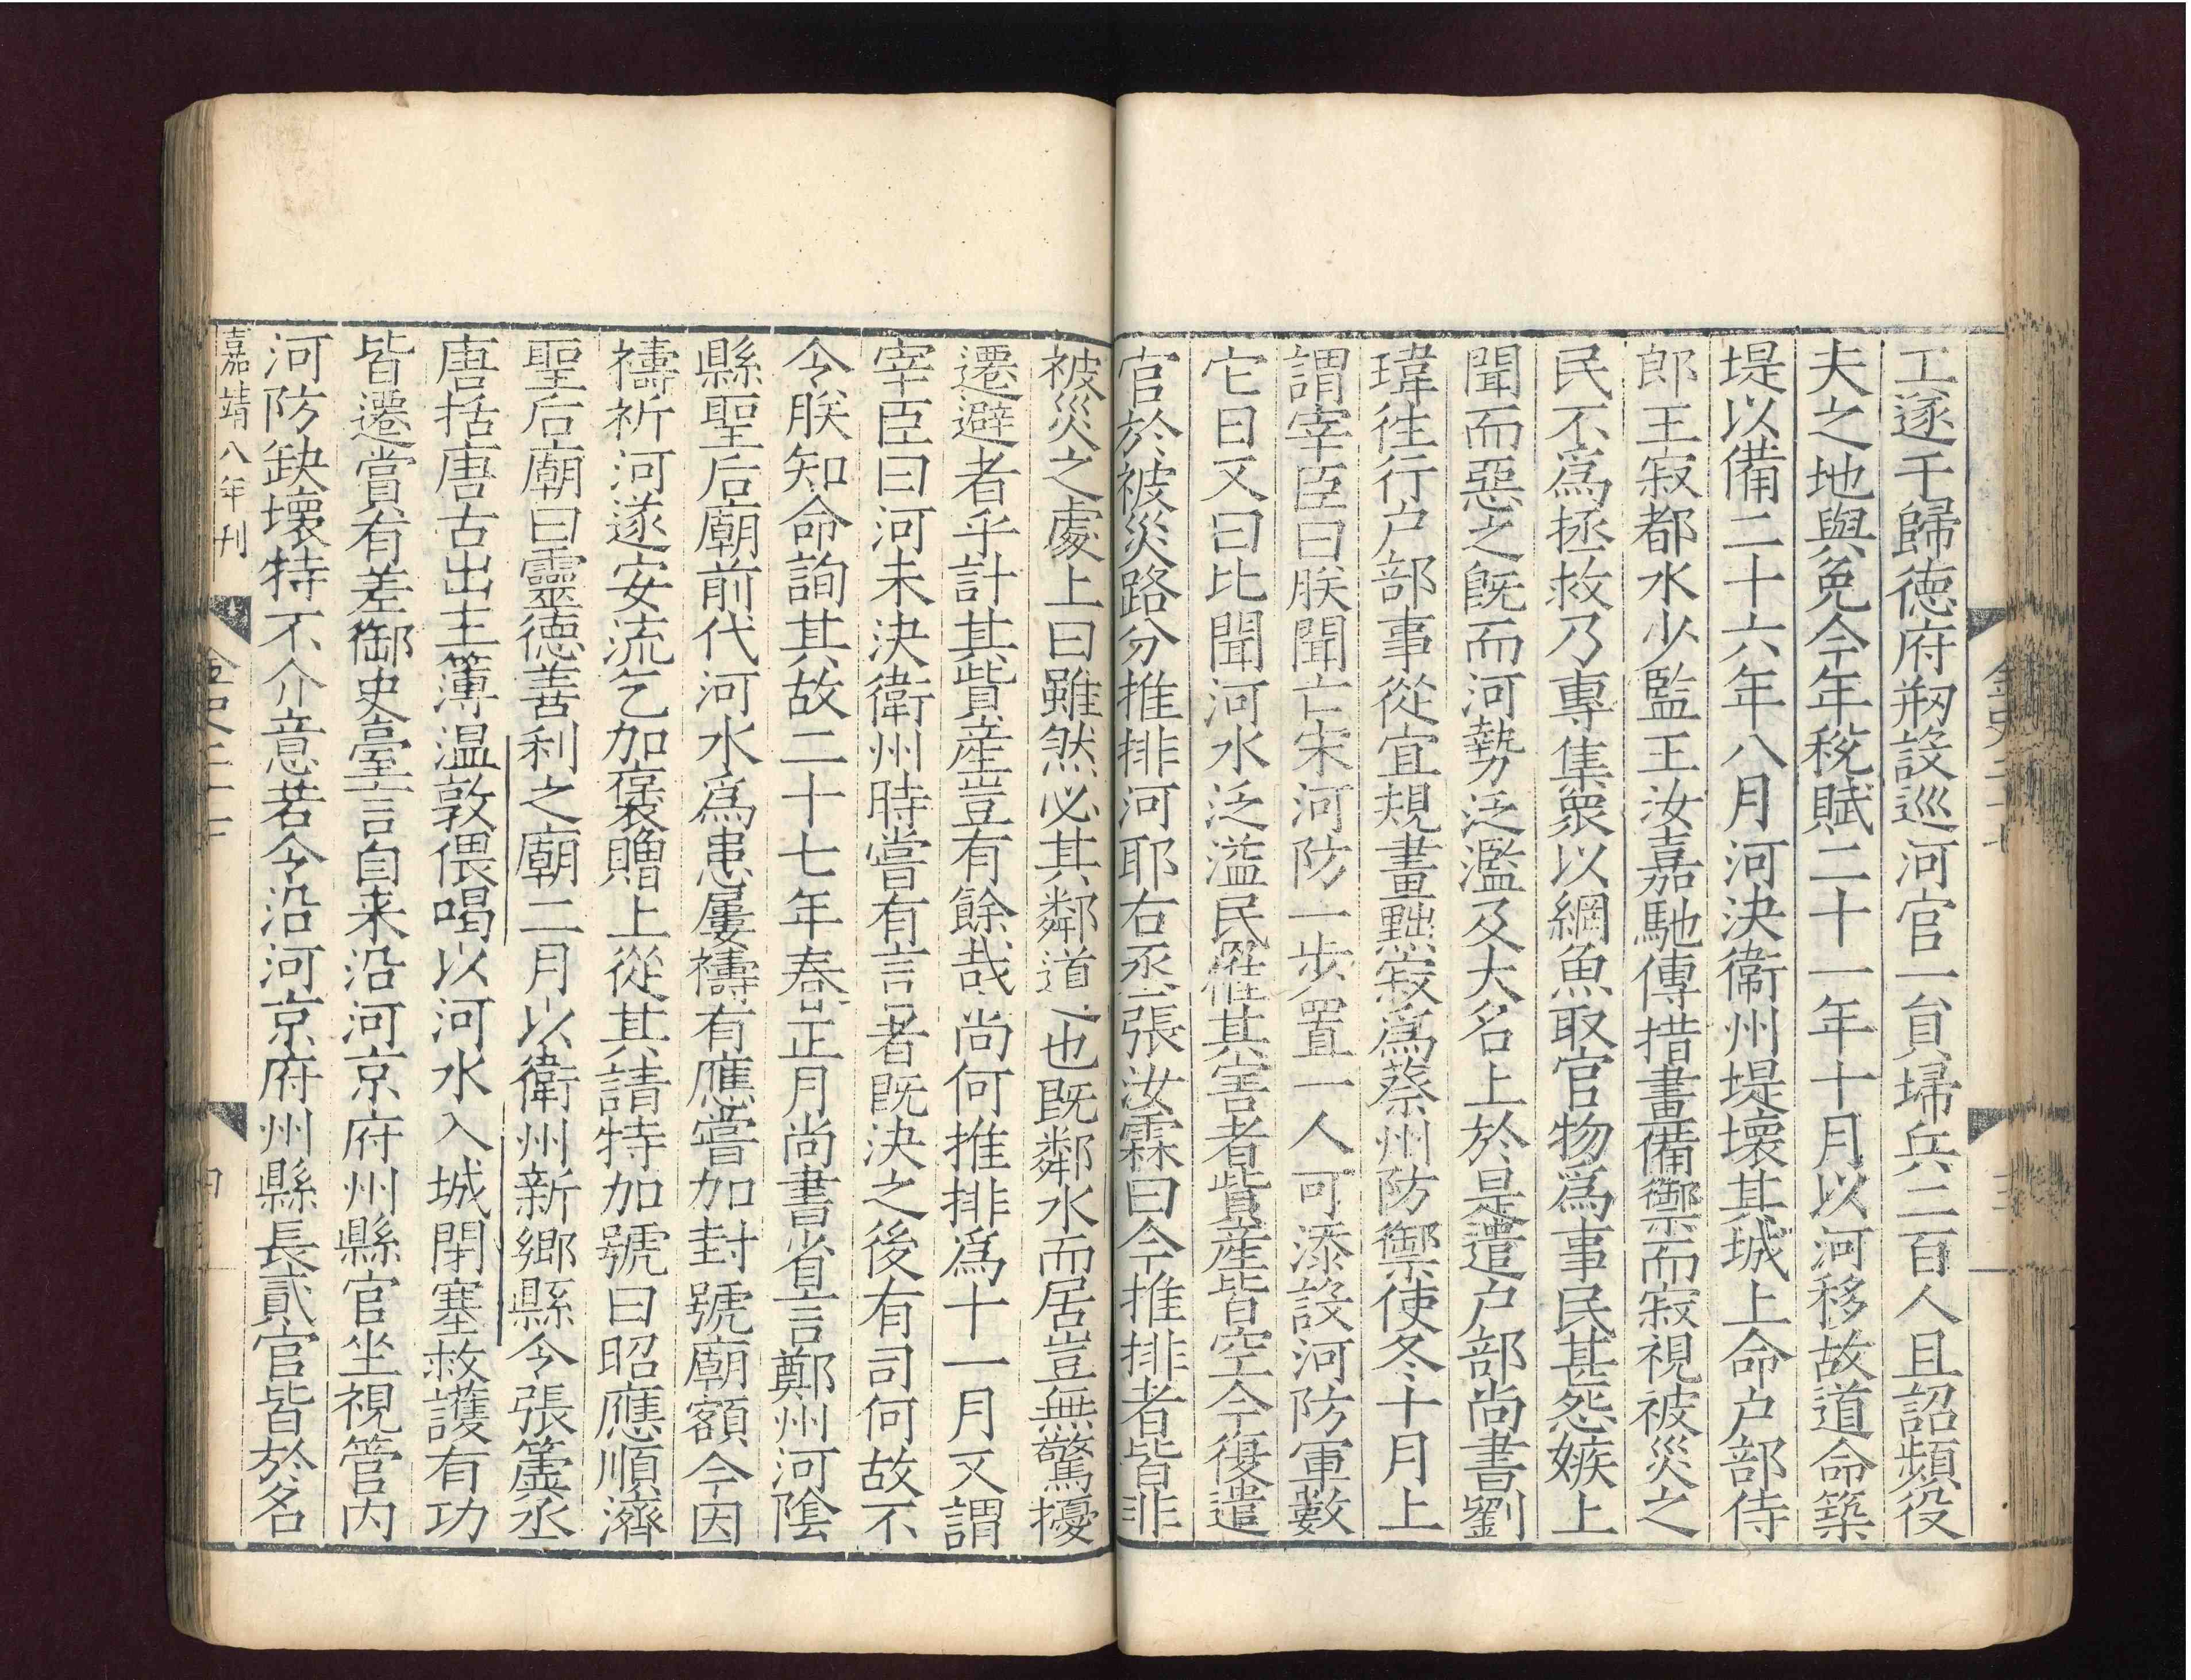 工遂于歸德府剏設巡河官一員埽兵二百人且詔頻役
夫之地與免今年稅賦二十一年十月以河移故道命築
堤以備二十六年八月河決衞州堤壞其城上命户部侍
郎王寂都水少監王汝嘉馳傳措畫備禦而寂視被災之
民不爲拯救乃專集衆以網魚取官物爲事民甚怨嫉上
聞而惡之旣而河勢泛濫及大名上於是遣户部尚書劉
瑋徃行户部事從宜規畫黜寂爲蔡州防禦使冬十月上
謂宰臣曰朕聞亡宋河防一步置一人可添設河防軍數
它日又曰比聞河水泛溢民罹其害者貲産皆空今復遣
官於被災路分推排河耶右丞張汝霖曰今推排者皆非
被災之處上曰雖然必其鄰道也旣鄰水而居豈無驚擾
遷避者乎計其貲産豈有餘哉尚何推排爲十一月又謂
宰臣曰河未決衛州時嘗有言者旣決之後有司何故不
令朕知命詢其故二十七年春正月尚書省言鄭州河陰
縣聖后廟前代河水爲患屢禱有應嘗加封號廟額今因
禱祈河遂安流乞加襃贈上從其請特加號曰昭應順濟
聖后廟曰靈德善利之廟二月以衛州新鄉縣令張簴丞
唐括唐古出主簿温敦偎喝以河水入城閉塞救護有功
皆遷賞有差御史臺言自来沿河京府州縣官坐視管内
河防缺壞特不介意若令沿河京府州縣長貳官皆於名
嘉靖八年刊
金史二十七
三